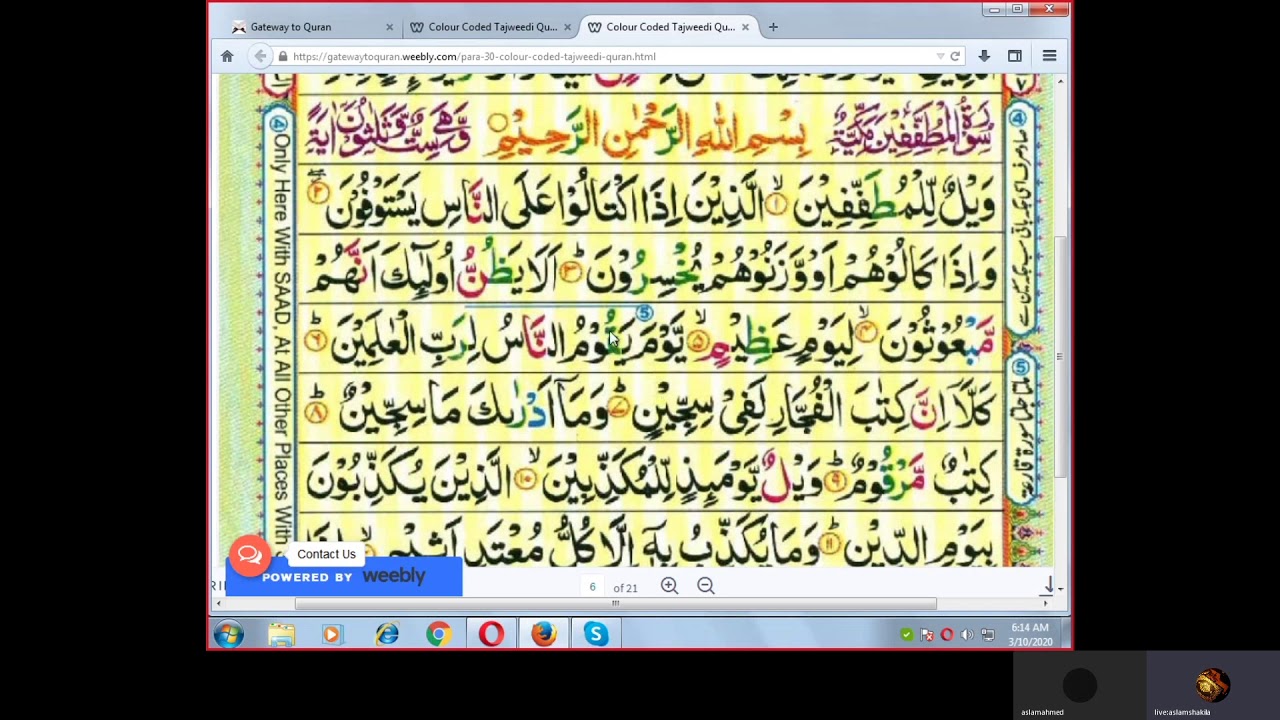 Gateway to Quran
Colour Coded Tajweedi Qu...
Colour Coded Tajweedi Qu...
https://gatewaytoquran.weebly.com/para-30-colour-coded-tajweedi-quran.html
سُوْرَةُ الْمُطَفِّفِيْنَ مَكِّيَّةٌ
بِسْمِ اللهِ الرَّحْمٰنِ الرَّحِيْمِ
وَّهِيَ سِتٌّ وَّثَلٰثُوْنَ اٰيَةً
وَيْلٌ لِّلْمُطَفِّفِيْنَ ۙ۱ الَّذِيْنَ اِذَا اكْتَالُوْا عَلَى النَّاسِ يَسْتَوْفُوْنَ ۲
وَاِذَا كَالُوْهُمْ اَوْ وَّزَنُوْهُمْ يُخْسِرُوْنَ ؕ۳ اَلَا يَظُنُّ اُولٰٓئِكَ اَنَّهُمْ
مَّبْعُوْثُوْنَ ۙ۴ لِيَوْمٍ عَظِيْمٍ ۙ۵ يَّوْمَ يَقُوْمُ النَّاسُ لِرَبِّ الْعٰلَمِيْنَ ؕ۶
كَلَّاۤ اِنَّ كِتٰبَ الْفُجَّارِ لَفِيْ سِجِّيْنٍ ؕ۷ وَمَاۤ اَدْرٰىكَ مَا سِجِّيْنٌ ؕ۸
كِتٰبٌ مَّرْقُوْمٌ ؕ۹ وَيْلٌ يَّوْمَئِذٍ لِّلْمُكَذِّبِيْنَ ۙ۱۰ الَّذِيْنَ يُكَذِّبُوْنَ
بِيَوْمِ الدِّيْنِ ؕ۱۱ وَمَا يُكَذِّبُ بِهٖۤ اِلَّا كُلُّ مُعْتَدٍ اَثِيْمٍ ۙ اِذَا
④ Only Here With SAAD, At All Other Places With
④
⑤
⑤
Contact Us
POWERED BY weebly
6 of 21
6:14 AM
3/10/2020
aslamahmed
live:aslamshakila